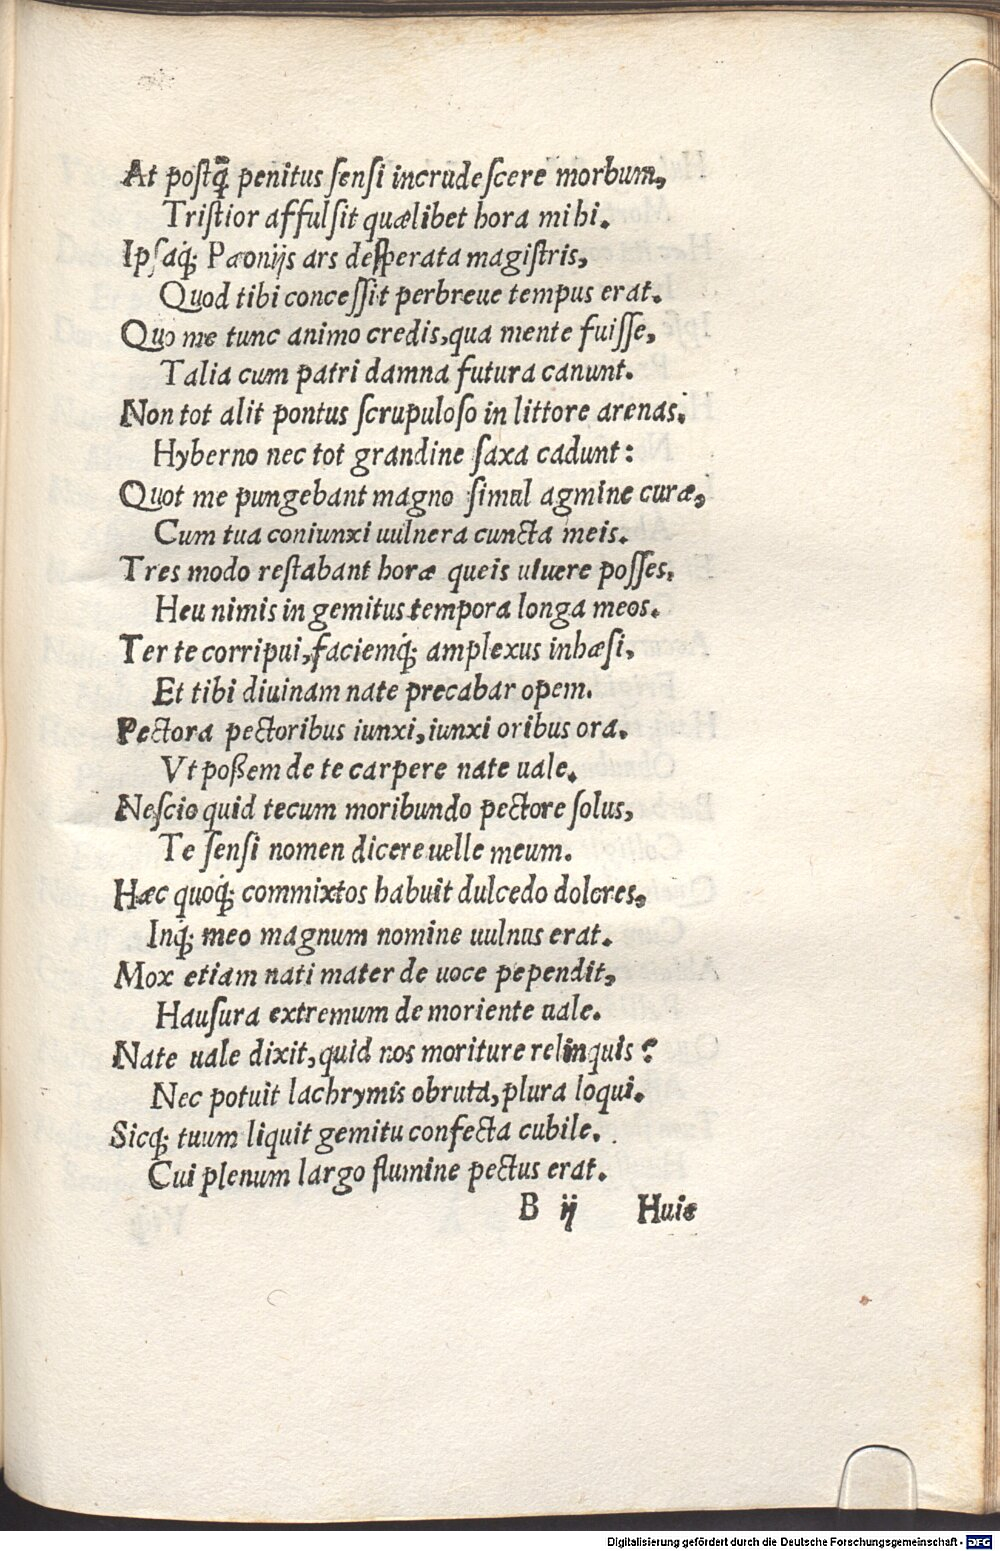 At postq̃ penitus sensi incrudescere morbum,
Tristior affulsit quælibet hora mihi.
Ipsaq; Pæonijs ars desperata magistris,
Quod tibi concessit perbreue tempus erat.
Quo me tunc animo credis, qua mente fuisse,
Talia cum patri damna futura canunt.
Non tot alit pontus scrupuloso in littore arenas,
Hyberno nec tot grandine saxa cadunt:
Quot me pungebant magno simul agmine curæ,
Cum tua coniunxi uulnera cuncta meis.
Tres modo restabant horæ queis uiuere posses,
Heu nimis in gemitus tempora longa meos.
Ter te corripui, faciemq; amplexus inhæsi,
Et tibi diuinam nate precabar opem.
Pectora pectoribus iunxi, iunxi oribus ora.
Vt poßem de te carpere nate uale.
Nescio quid tecum moribundo pectore solus,
Te sensi nomen dicere uelle meum.
Hæc quoq; commixtos habuit dulcedo dolores,
Inq; meo magnum nomine uulnus erat.
Mox etiam nati mater de uoce pependit,
Hausura extremum de moriente uale.
Nate uale dixit, quid nos moriture relinquis?
Nec potuit lachrymis obruta, plura loqui.
Sicq; tuum liquit gemitu confecta cubile.
Cui plenum largo flumine pectus erat.
B ij Huic
Digitalisierung gefördert durch die Deutsche Forschungsgemeinschaft - DFG